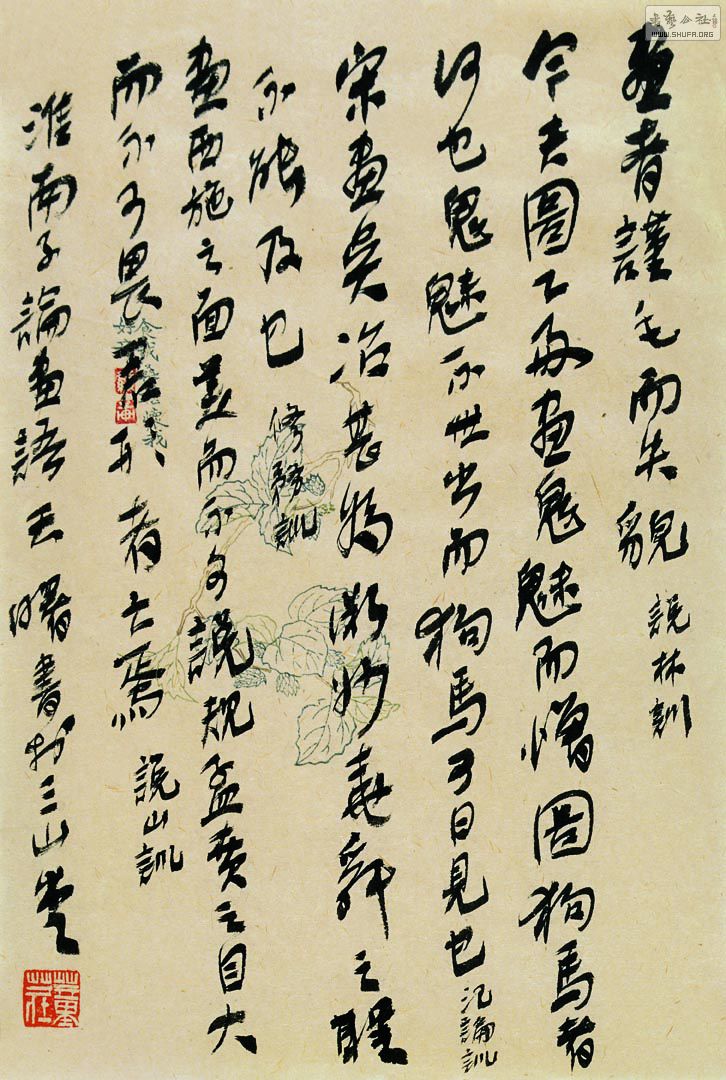 書藝公社
WWW.SHUFA.ORG
畫者謹毛而失貌 說林訓
今夫圖工好畫鬼魅而憎圖狗馬者
何也鬼魅不世出而狗馬可日見也 氾論訓
宋畫吳冶甚為微妙堯舜之聖
不能及也 修務訓
畫西施之面美而不可說規孟賁之目大
而不可畏君形者亡焉 說山訓
淮南子論畫語王曙書於三山